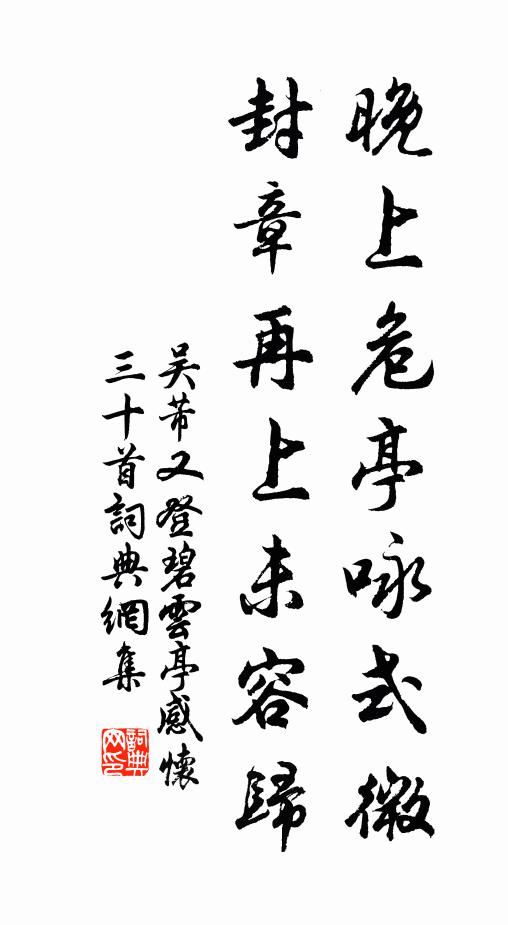 晚上危亭咏式微
封章再上未容歸
吴芾又登碧雲亭感懷
三十首詞典網集
詞典
网印